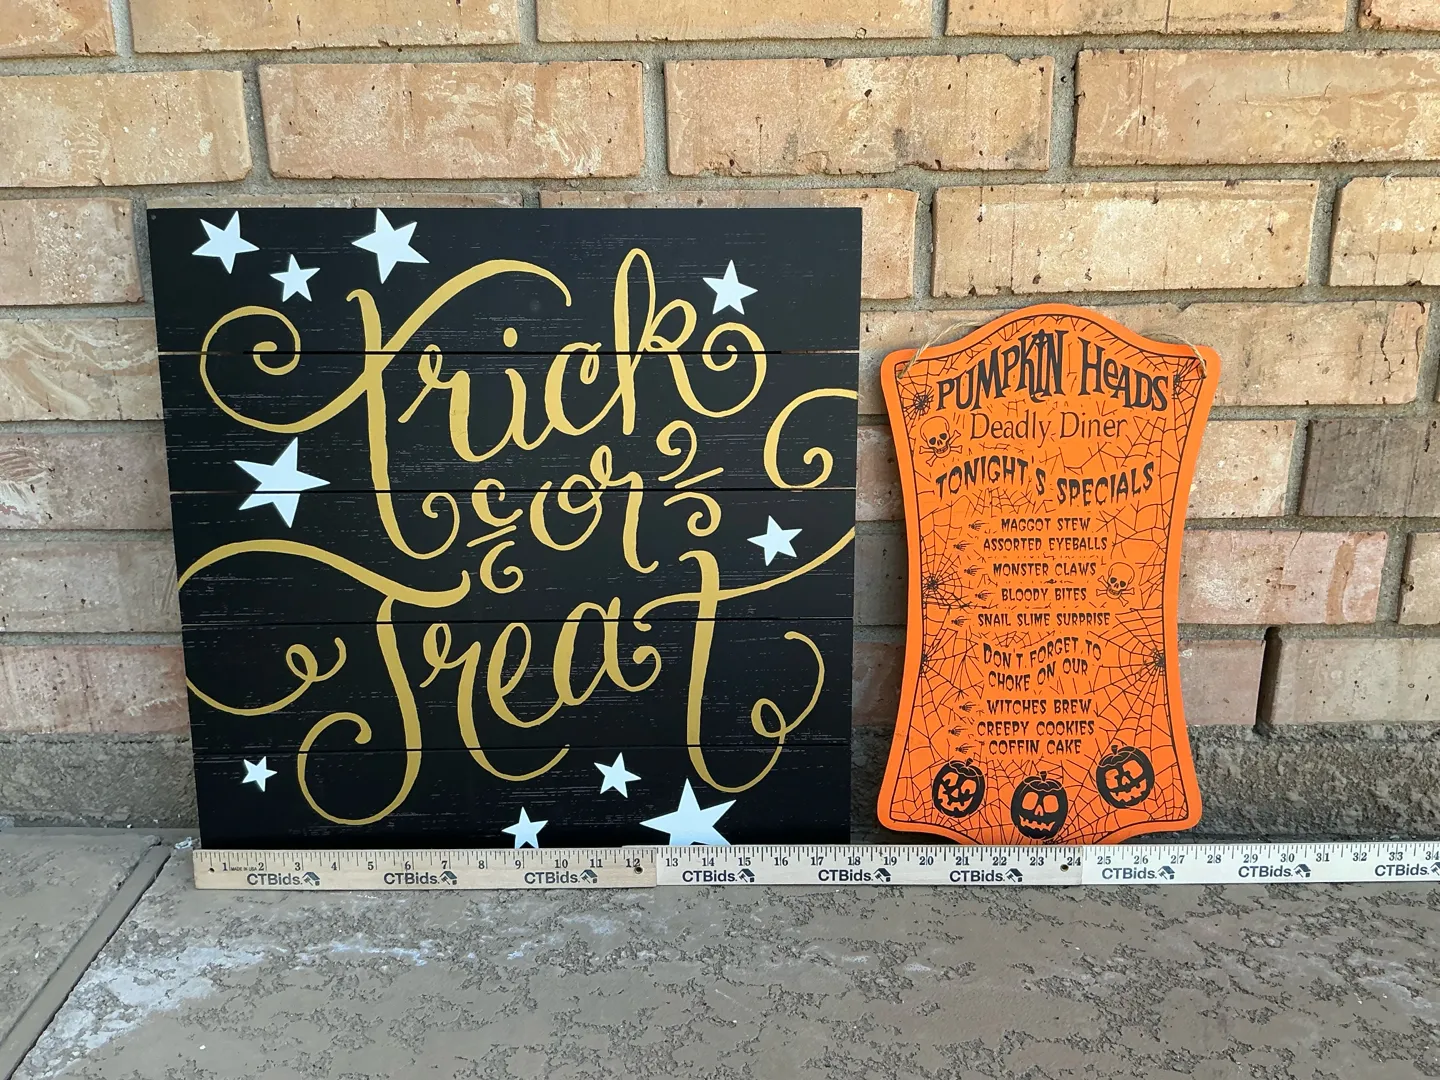 Trick
or
Treat
PUMPKIN HEADS
Deadly Diner
TONIGHT'S SPECIALS
MAGGOT STEW
ASSORTED EYEBALLS
MONSTER CLAWS
BLOODY BITES
SNAIL SLIME SURPRISE
DON'T FORGET TO
CHOKE ON OUR
WITCHES BREW
CREEPY COOKIES
COFFIN CAKE
1 2 3 4 5 6 7 8 9 10 11 12 13 14 15 16 17 18 19 20 21 22 23 24 25 26 27 28 29 30 31 32 33 34
MADE IN USA
CTBids. CTBids. CTBids. CTBids. CTBids. CTBids. CTBids. CTBids. CTBids.